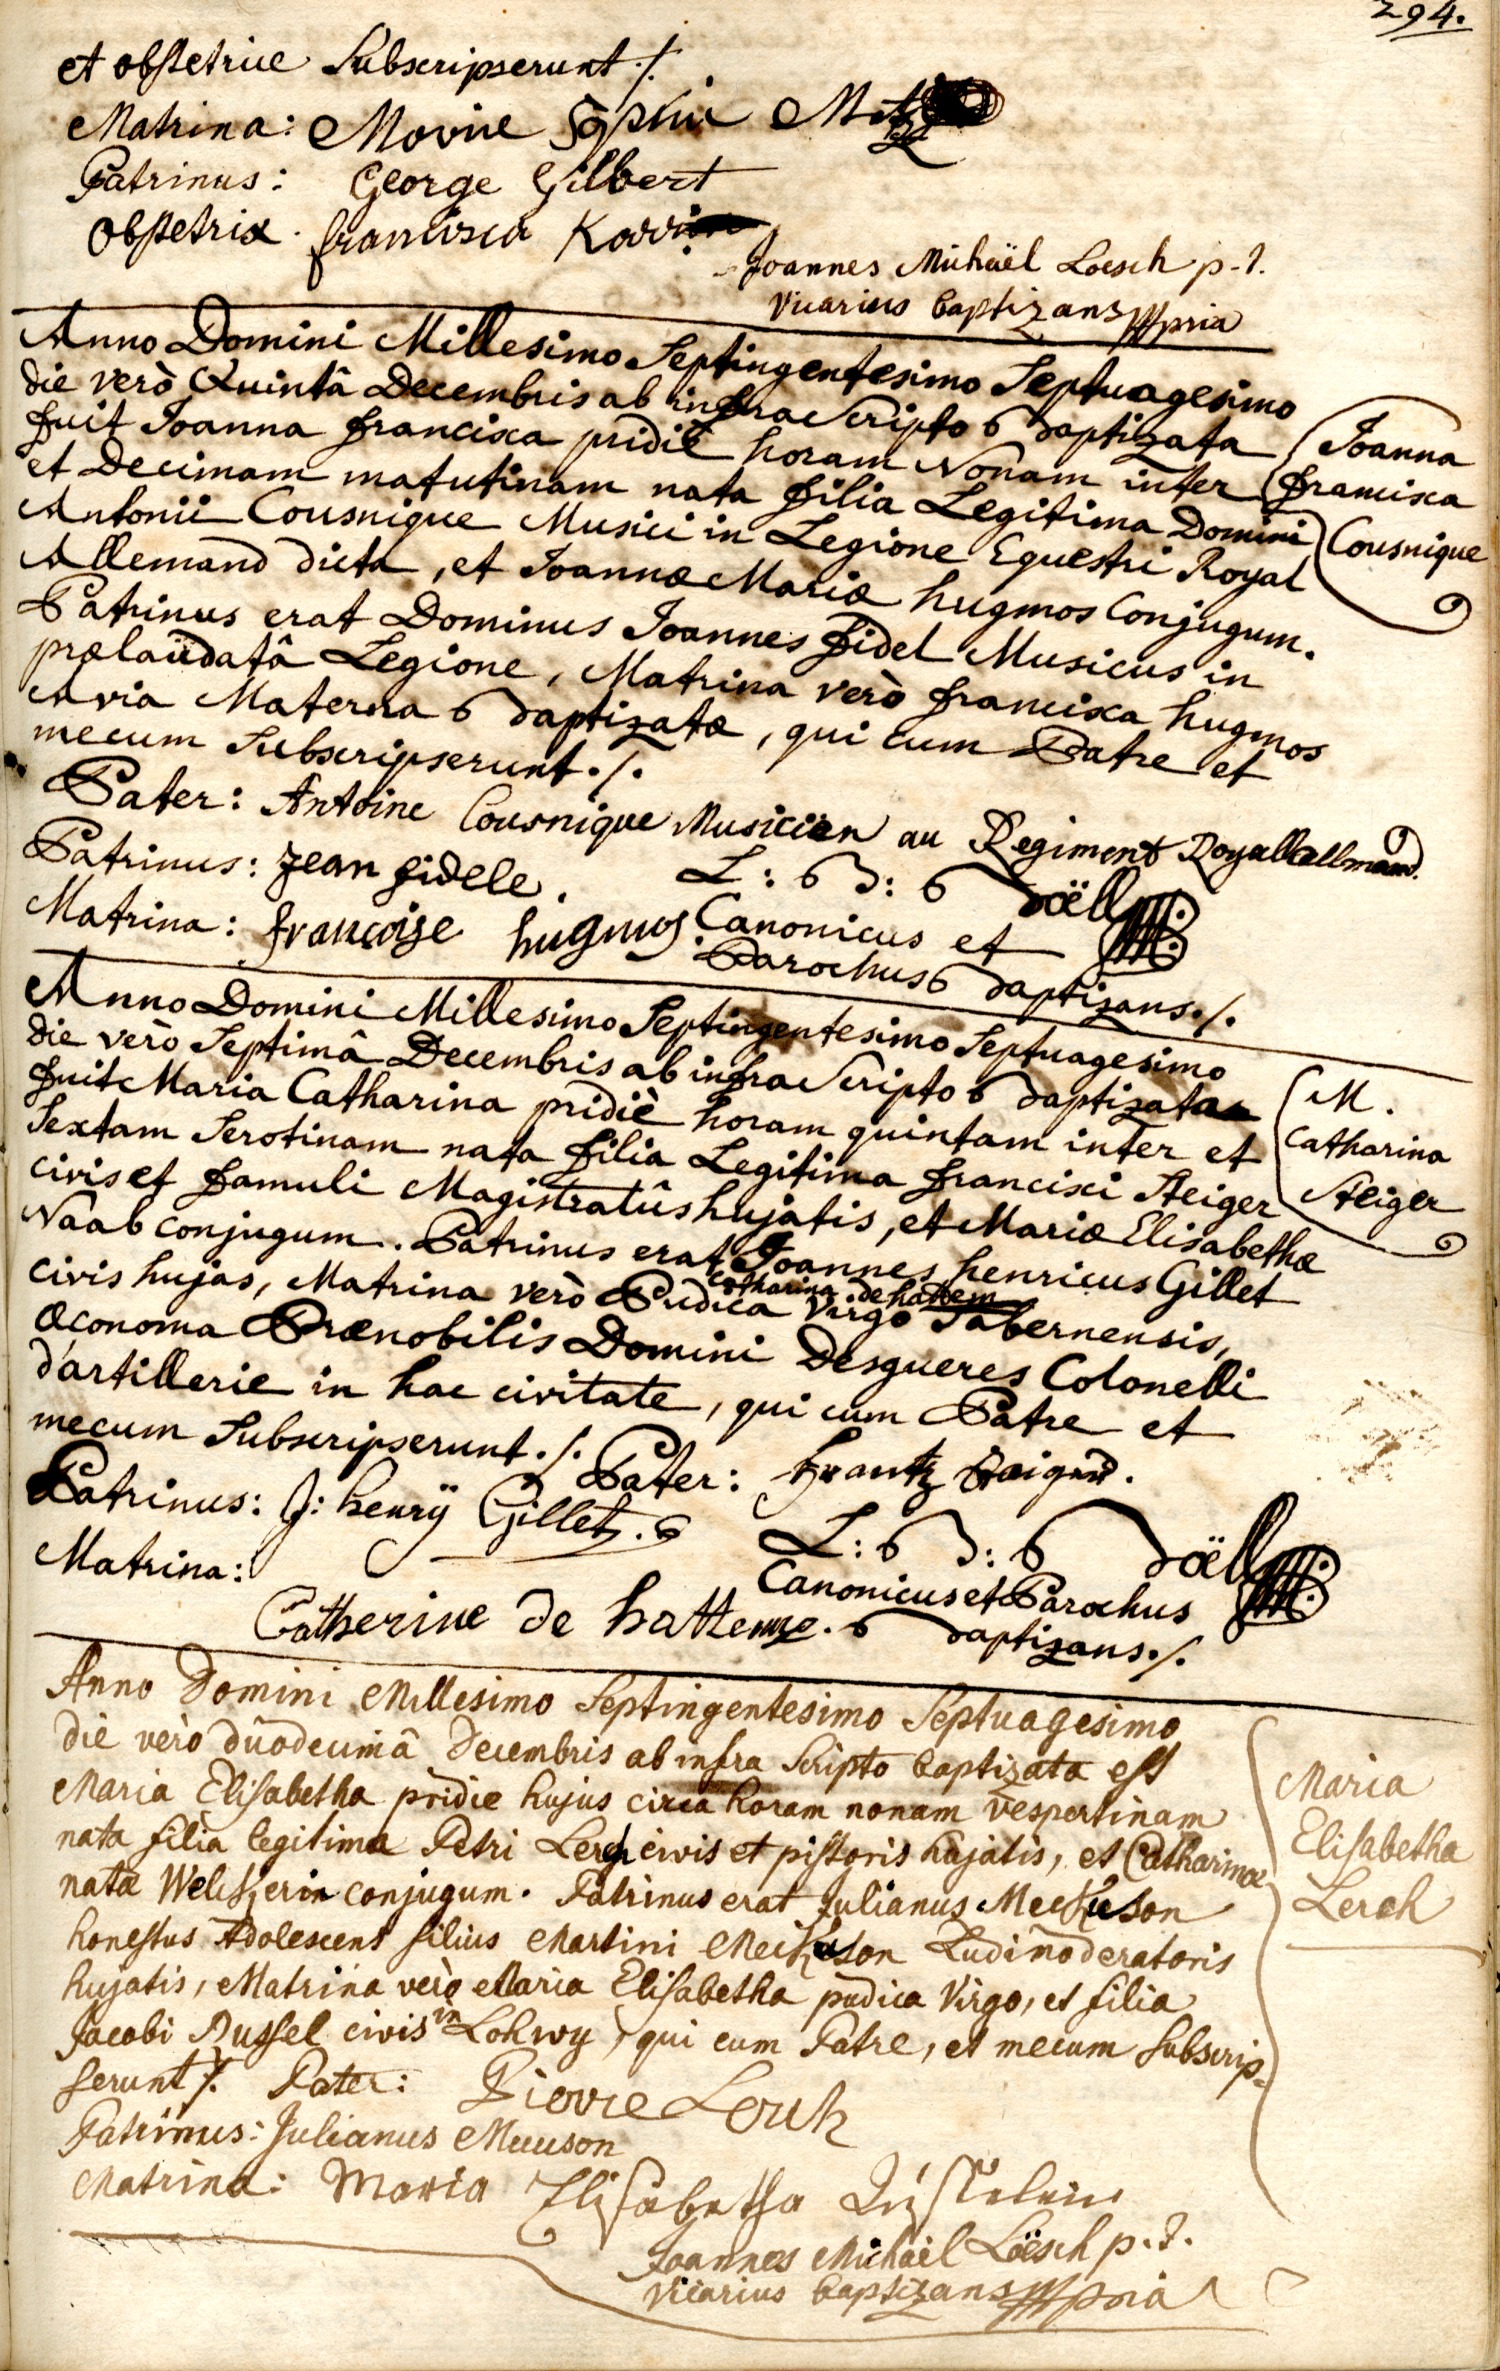 294.
et obstetrice Subscripserunt ./.
Matrina: Morie Sophie
Patrinus: George Gilbert
Obstetrix. francisca
Joannes Michaël Loesch p.t.
Vicarius baptizans mppria
Anno Domini Millesimo Septingentesimo Septuagesimo
die verò Quintâ Decembris ab infra Scripto baptizata
fuit Joanna francisca pridiè horam Nonam inter
et Decimam matutinam nata filia Legitima Domini
Antonii Cousnique Musici in Legione Equestri Royal
Allemand dicta, et Joannæ Mariæ hugmos Conjugum.
Patrinus erat Dominus Joannes fidel Musicus in
prælaudatâ Legione, Matrina verò francisca hugmos
Avia Materna baptizatæ, qui cum Patre et
mecum Subscripserunt ./.
Joanna
francisca
Cousnique
Pater: Antoine Cousnique Musicien au Regiment Royallallmand.
Patrinus: Jean fidele.
Matrina: françoise hugmos
L: B: Doëll
Canonicus et
Parochus baptizans ./.
Anno Domini Millesimo Septingentesimo Septuagesimo
die verò Septimâ Decembris ab infra Scripto baptizata
fuit Maria Catharina pridiè horam quintam inter et
Sextam Serotinam nata filia Legitima francisci Steiger
civis et famuli Magistratûs hujatis, et Mariæ Elisabethæ
Naab conjugum. Patrinus erat Joannes henricus Gillet
civis hujas, Matrina verò Pudica Virgo catharina de hattem Tabernensis,
œconoma Prænobilis Domini Desgueres Colonelli
d'artillerie in hac civitate, qui cum Patre et
mecum Subscripserunt ./.
M.
Catharina
Steiger
Pater: frantz
Patrinus: J: henrÿ Gillet.
Matrina:
Catherine de hatteme.
L: B: Doëll
Canonicus et Parochus
baptizans ./.
Anno Domini Millesimo Septingentesimo Septuagesimo
die verò duodecimâ Decembris ab infra Scripto baptizata est
Maria Elisabetha pridie hujus circa horam nonam vespertinam
nata filia legitima Petri Lerch civis et pistoris hujatis, et Catharinæ
nata conjugum. Patrinus erat Julianus
honestus Adolescens filius Martini Ludimoderatoris
hujatis, Matrina verò Maria Elisabetha pudica Virgo, et filia
Jacobi civis in Lohwy, qui cum Patre, et mecum Subscrip-
serunt ./. Pater: Pierre Lerch
Maria
Elisabetha
Lerch
Patrinus: Julianus
Matrina: Maria Elisabetha
Joannes Michaël Loësch p.t.
Vicarius baptizans mppria